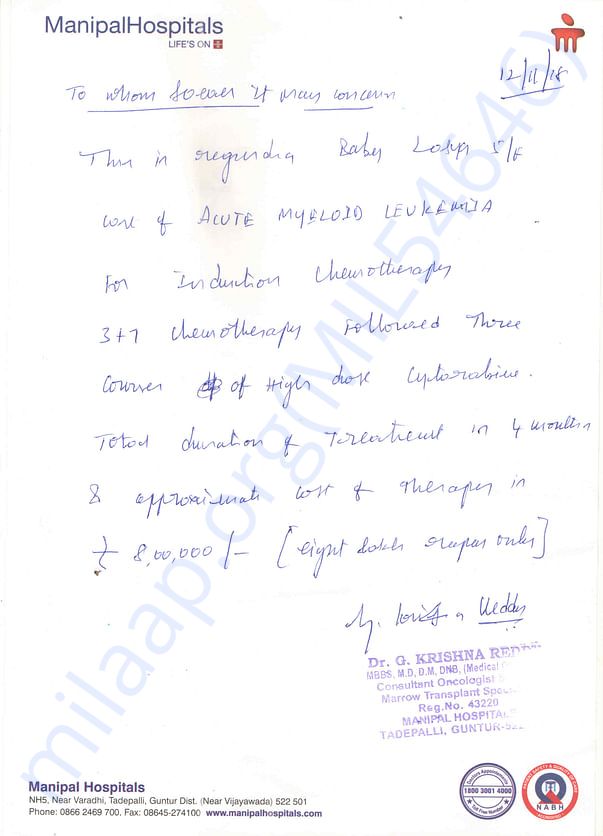 ManipalHospitals
LIFE'S ON
12/11/18
To whom so ever it may concern
This is regarding Baby 5/F
case of ACUTE MYELOID LEUKEMIA
For Induction Chemotherapy
3+7 chemotherapy Followed Three
courses of High dose Cytarabine.
Total duration of Treatment is 4 months
& approximate cost of therapy is
8,00,000/- [eight lakh rupees only]
Reddy
Dr. G. KRISHNA REDDY
MBBS, M.D, D.M, DNB, (Medical
Consultant Oncologist
Marrow Transplant
Reg.No. 43220
MANIPAL HOSPITAL
TADEPALLI, GUNTUR-522
milaap.org(MIL54646)
Manipal Hospitals
NH5, Near Varadhi, Tadepalli, Guntur Dist. (Near Vijayawada) 522 501
Phone: 0866 2469 700. Fax: 08645-274100 www.manipalhospitals.com
Doctors Appointments
1800 3001 4000
Toll Free Number
PATIENT SAFETY & QUALITY OF CARE
NABH
ACCREDITED